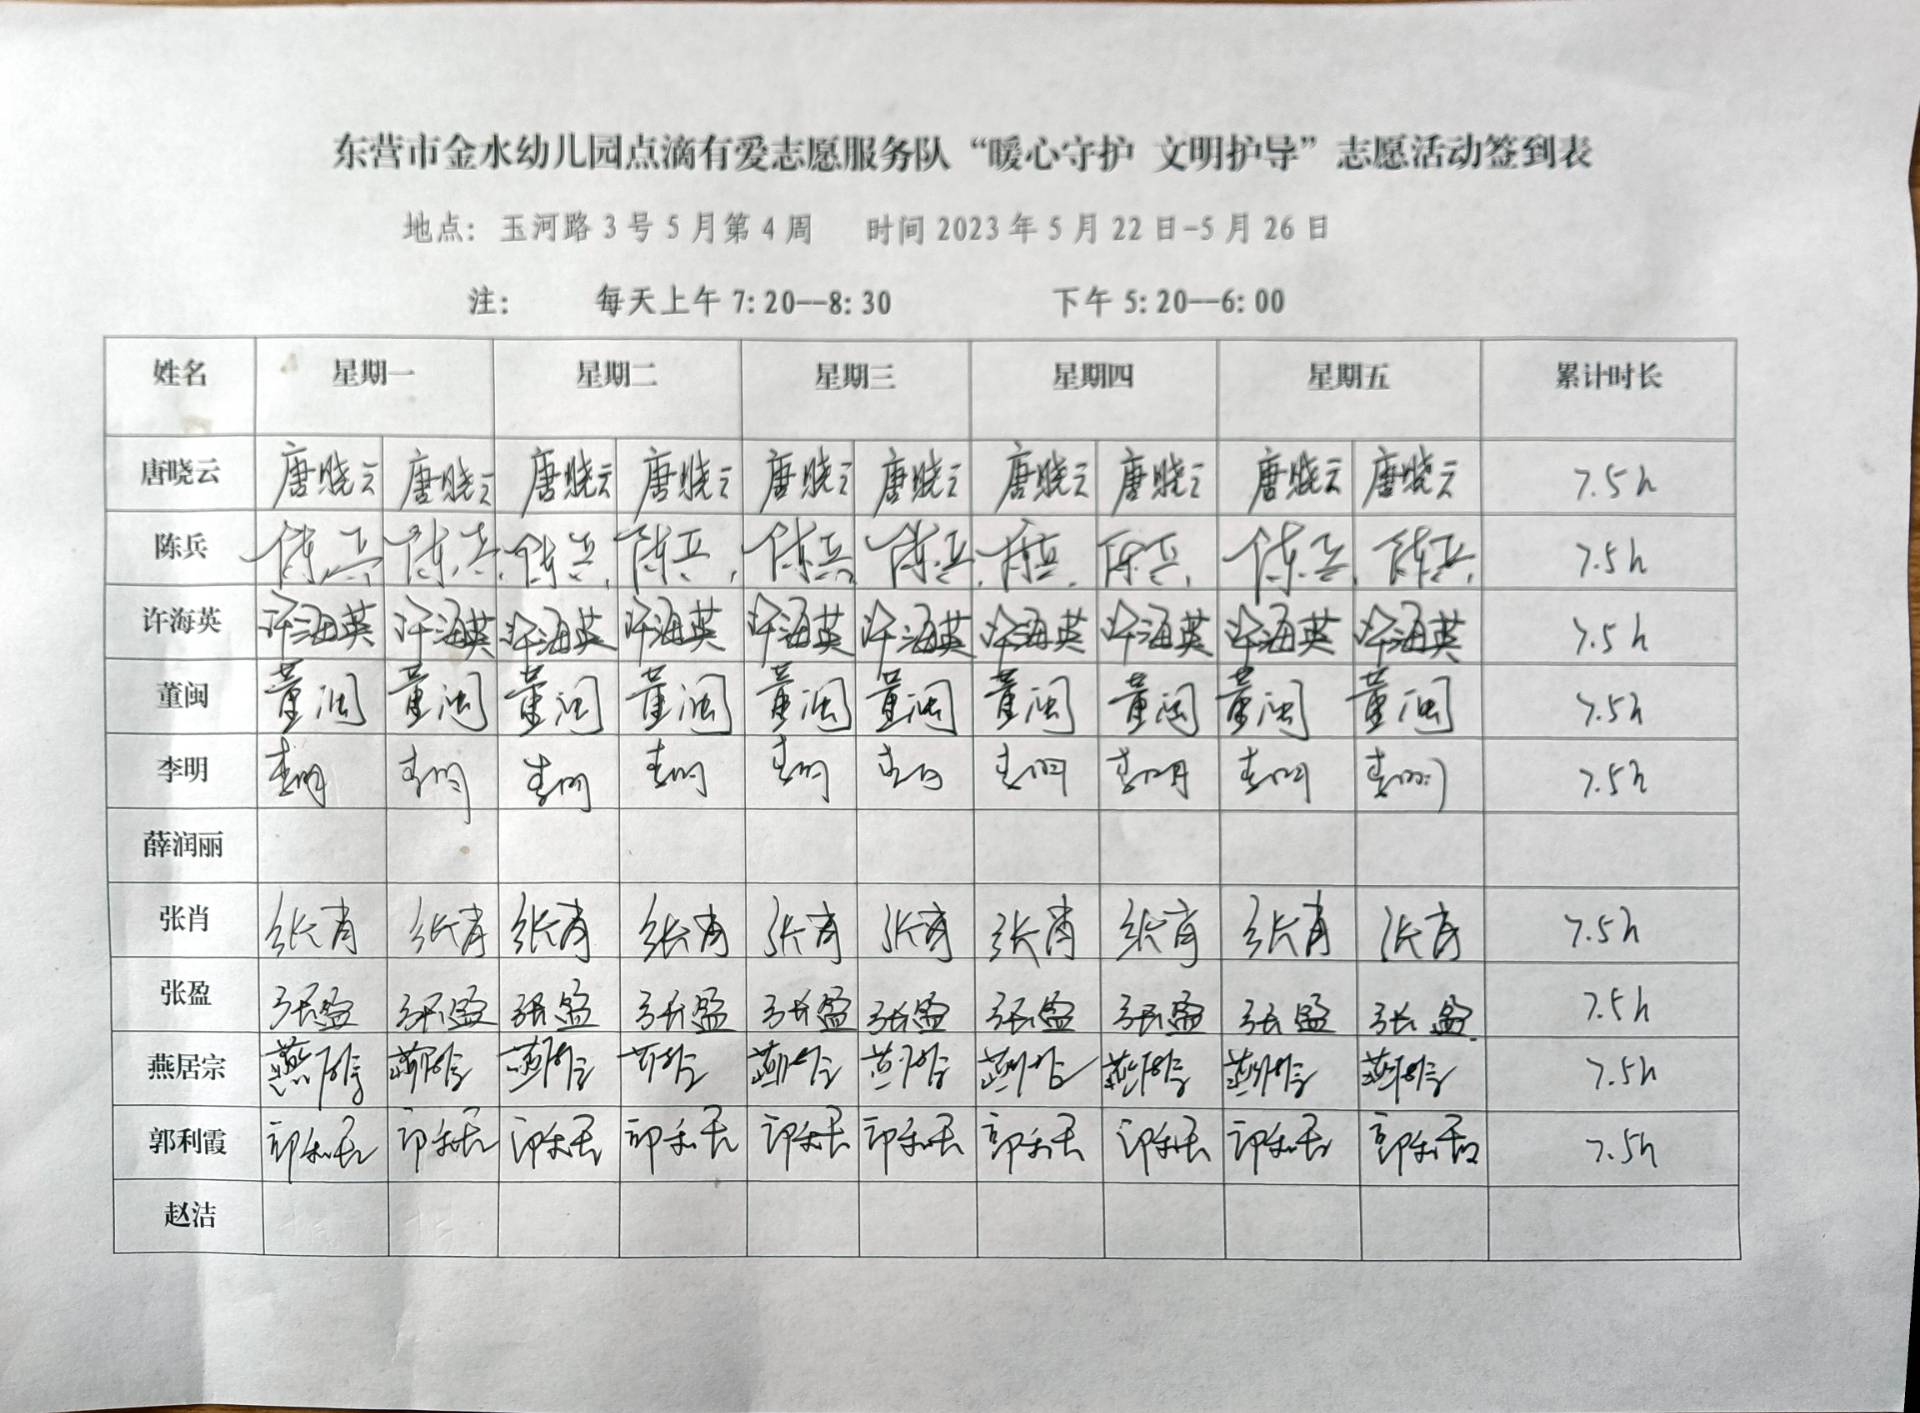 东营市金水幼儿园点滴有爱志愿服务队“暖心守护 文明护导”志愿活动签到表
地点：玉河路3号5月第4周 时间2023年5月22日-5月26日
注： 每天上午7:20--8:30 下午5:20--6:00
姓名 星期一 星期二 星期三 星期四 星期五 累计时长
唐晓云 唐晓云 唐晓云 唐晓云 唐晓云 唐晓云 唐晓云 唐晓云 唐晓云 唐晓云 唐晓云 7.5h
陈兵 陈兵 陈兵 陈兵 陈兵 陈兵 陈兵 陈兵 陈兵 陈兵 陈兵 7.5h
许海英 许海英 许海英 许海英 许海英 许海英 许海英 许海英 许海英 许海英 许海英 7.5h
董闽 董闽 董闽 董闽 董闽 董闽 董闽 董闽 董闽 董闽 董闽 7.5h
李明 李明 李明 李明 李明 李明 李明 李明 李明 李明 李明 7.5h
薛润丽
张肖 张肖 张肖 张肖 张肖 张肖 张肖 张肖 张肖 张肖 张肖 7.5h
张盈 张盈 张盈 张盈 张盈 张盈 张盈 张盈 张盈 张盈 张盈 7.5h
燕居宗 燕居宗 燕居宗 燕居宗 燕居宗 燕居宗 燕居宗 燕居宗 燕居宗 燕居宗 燕居宗 7.5h
郭利霞 郭利霞 郭利霞 郭利霞 郭利霞 郭利霞 郭利霞 郭利霞 郭利霞 郭利霞 郭利霞 7.5h
赵洁